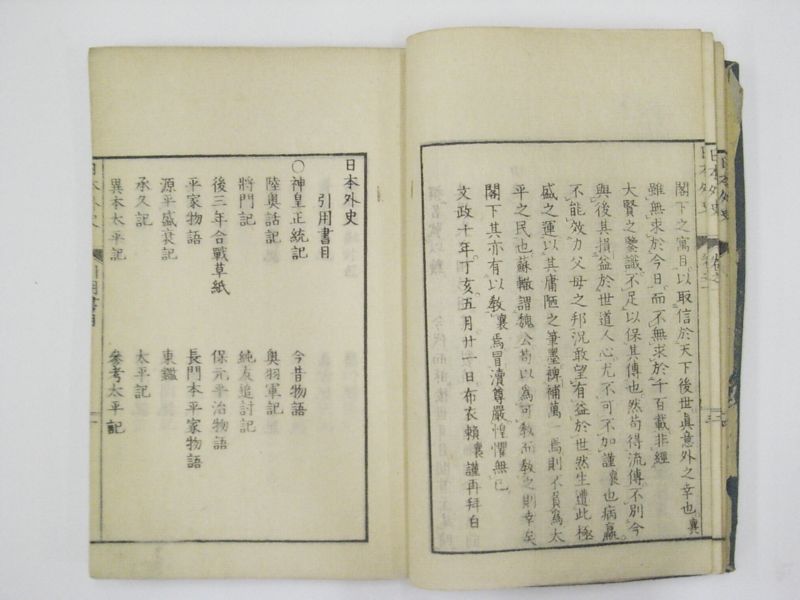 閣下之寓目以取信於天下後世眞意外之幸也襄
雖無求於今日而不無求於千百載非經
大賢之鑒識不足以保其傳也然苟得流傳不別今
與後其損益於世道人心尤不可不加謹襄也病羸
不能效力父母之邦況敢望有益於世然生遭此極
盛之運以其庸陋之筆墨裨補萬一焉則不負爲太
平之民也蘇轍謂魏公苟以爲可教而教之則幸矣
閣下其亦有以教襄焉冒瀆尊嚴惶懼無已
文政十年丁亥五月廿一日布衣賴襄謹再拜白
日本外史
引用書目
○神皇正統記 今昔物語
陸奥話記 奥羽軍記
將門記 純友追討記
後三年合戰草紙 保元平治物語
平家物語 長門本平家物語
源平盛衰記 東鑑
承久記 太平記
異本太平記 參考太平記
日本外史 引用書目 一
日本外史
日本外史
日本外史